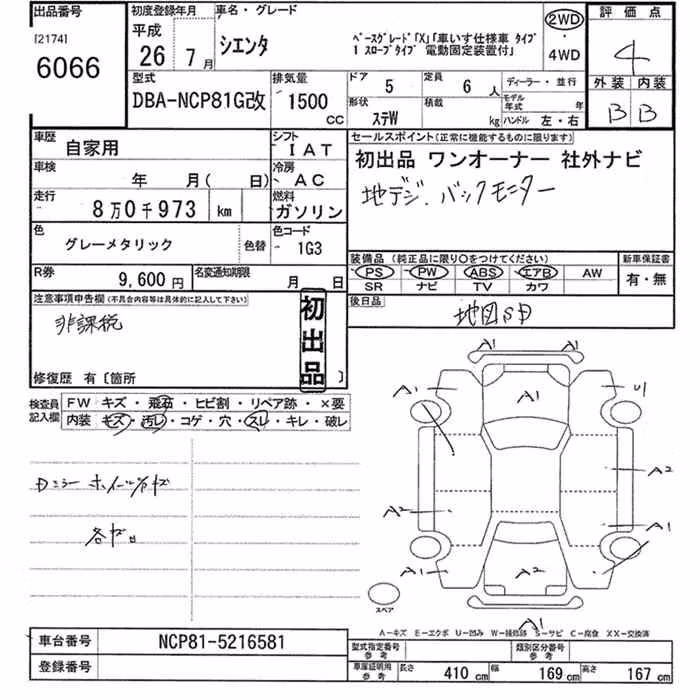 出品番号 初度登録年月 車名・グレード 2WD 評価点
[2174] 平成
6066 26 7月 シエンタ ベースグレード「X」「車いす仕様車 タイプ
1 スロープタイプ 電動固定装置付」 ・ 4WD 4
型式 排気量 ドア 5 定員 6人 ディーラー・並行 外装 内装
DBA-NCP81G改 1500 CC 形状 ステW 積載 kg モデル年式 年 ハンドル 左・右 B B
車歴 自家用 シフト IAT セールスポイント(正常に機能するものに限ります)
車検 年 月( 日) 冷房 AC 初出品 ワンオーナー 社外ナビ
走行 8万0千973 km 燃料 ガソリン 地デジ.バックモニター
色 グレーメタリック 色替 色コード 1G3
装備品(純正品に限り○をつけてください) 新車保証書
R券 9,600円 名変通知期限 月 日 PS PW ABS エアB AW 有・無
SR ナビ TV カワ
注意事項申告欄(不具合内容等は具体的に記入して下さい) 初出品 後日品
非課税 地図SD
修復歴 有〔箇所 〕
検査員記入欄 FW キズ・飛石・ヒビ割・リペア跡・×要
内装 キズ・汚レ・コゲ・穴・スレ・キレ・破レ
A1
A1 A1 U1
Dミラー ホイールキズ A2
A2 A1
各キズ
A1 A2 A1
スペア
A1
A-キズ E-エクボ U-凹み W-補修跡 S-サビ C-腐食 XX-交換済
車台番号 NCP81-5216581 型式指定番号 参考 類別区分番号 参考
登録番号 車庫証明用 参考 長さ 410 cm 幅 169 cm 高さ 167 cm